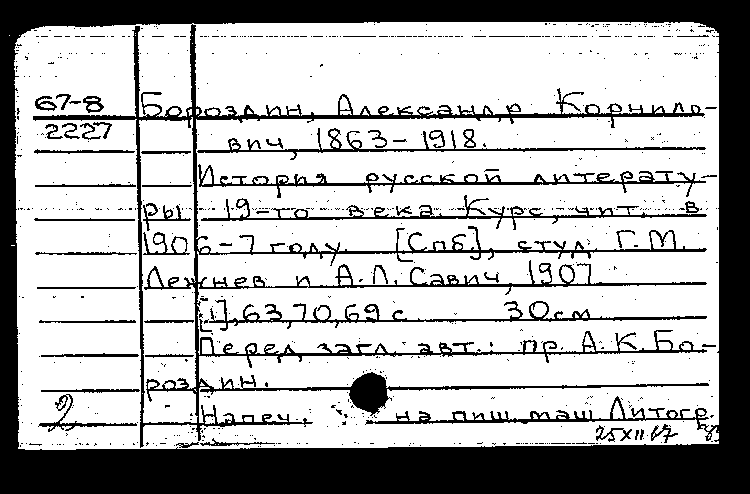 67-8 Бороздин, Александр Корнило-
2227 вич, 1863-1918.
История русской литерату-
ры 19-го века. Курс, чит. в
1906-7 году. [Спб.], студ. Г.М.
Лежнев и А.Л. Савич, 1907
[1], 63, 70, 69 с. 30 см
Перед загл. авт.: пр. А.К. Бо-
роздин.
2 Напеч. на пиш. маш. Литогр.
25 XII 67